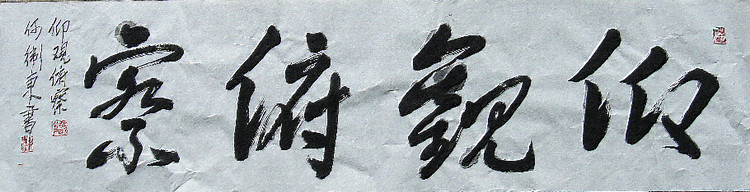 仰觀俯察
仰观俯察
衛東書